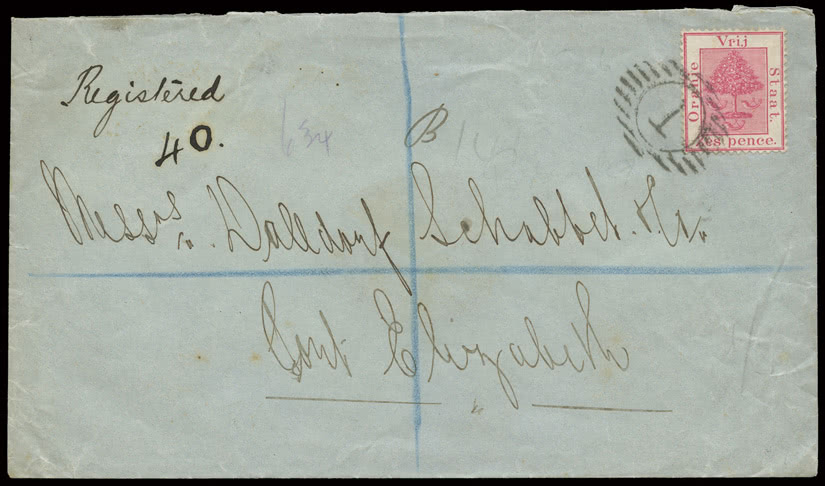 Registered
40.
B
Vrij
Oranje
Staat.
Zes pence.
1
Messrs. Dalldorf Schabbel. & Co.
Port Elizabeth